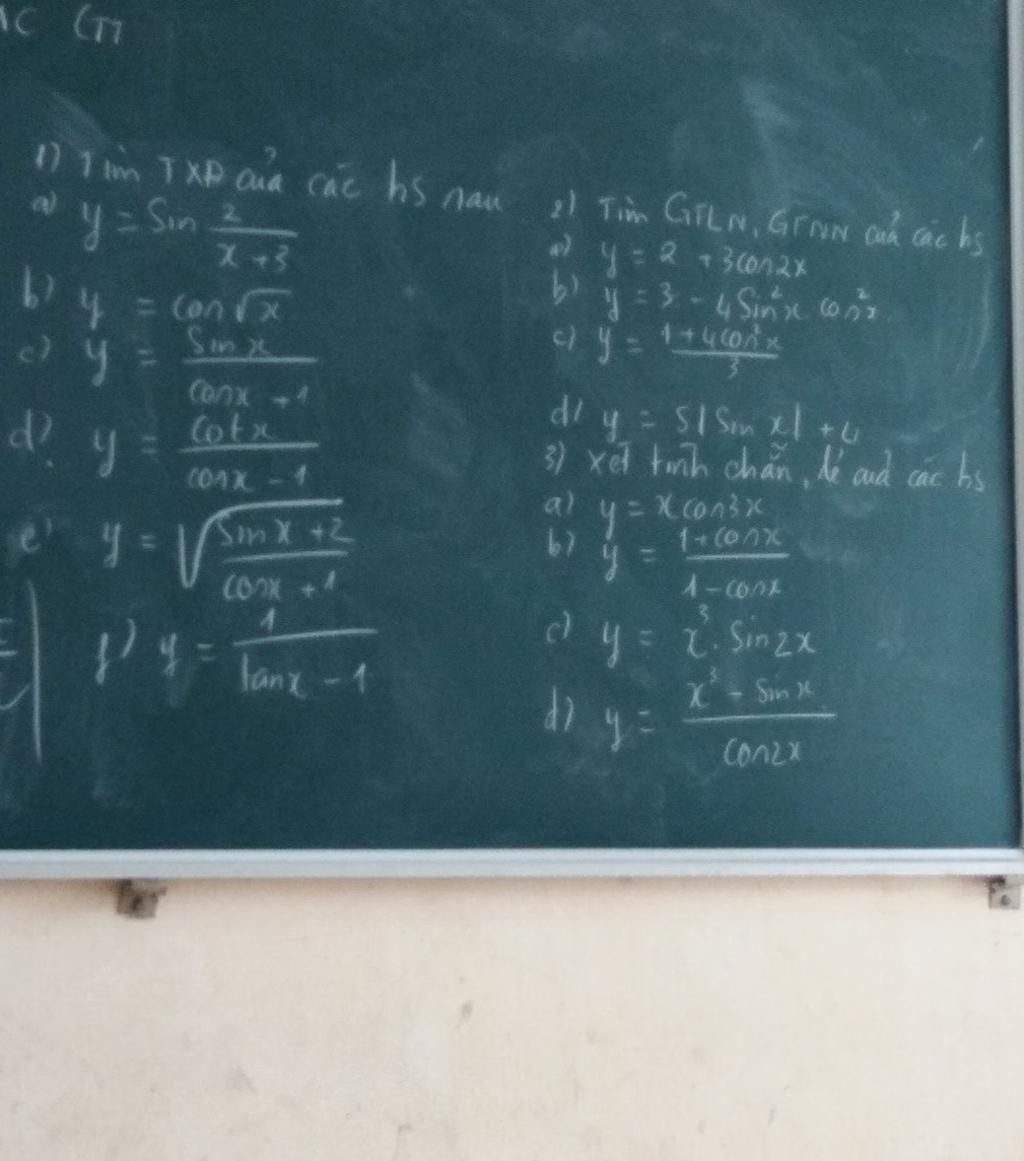 AC CM
1) Tìm TXĐ của các hs sau
a) y = Sin 2/(x+3)
b) y = cos√x
c) y = Sinx/(cosx+1)
d) y = Cotx/(cosx-1)
e) y = √((Sinx+2)/(cosx+1))
f) y = 1/(tanx-1)
2) Tìm GTLN, GTNN của các hs
a) y = 2 + 3cos2x
b) y = 3 - 4Sin²x cos²x
c) y = (1+4cos²x)/3
d) y = 5|Sin x| + 4
3) Xét tính chẵn, lẻ của các hs
a) y = xcos3x
b) y = (1+cosx)/(1-cosx)
c) y = x³.Sin2x
d) y = (x³-Sinx)/cos2x